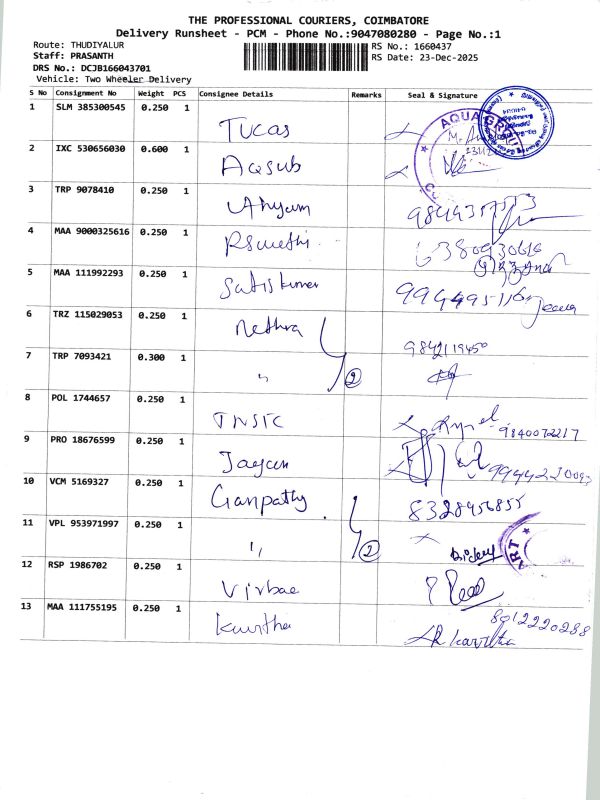 THE PROFESSIONAL COURIERS, COIMBATORE
Delivery Runsheet - PCM - Phone No.:9047080280 - Page No.:1
Route: THUDIYALUR
RS No.: 1660437
Staff: PRASANTH
RS Date: 23-Dec-2025
DRS No.: DCJB166043701
Vehicle: Two Wheeler Delivery
S No Consignment No Weight PCS Consignee Details Remarks Seal & Signature
1 SLM 385300545 0.250 1 Tucas
AQUA
2 IXC 530656030 0.600 1 Aqsub
3 TRP 9078410 0.250 1
4 MAA 9000325616 0.250 1
5 MAA 111992293 0.250 1 Satiskumar
6 TRZ 115029053 0.250 1 Nethra 9842119450
7 TRP 7093421 0.300 1 " 2
8 POL 1744657 0.250 1 TNSTC 9840072217
9 PRO 18676599 0.250 1 Jayam
10 VCM 5169327 0.250 1 Ganpathy 8328956855
11 VPL 953971997 0.250 1 " 2 ART
12 RSP 1986702 0.250 1 Virbac
13 MAA 111755195 0.250 1 Kavitha 8012220288
Kavitha